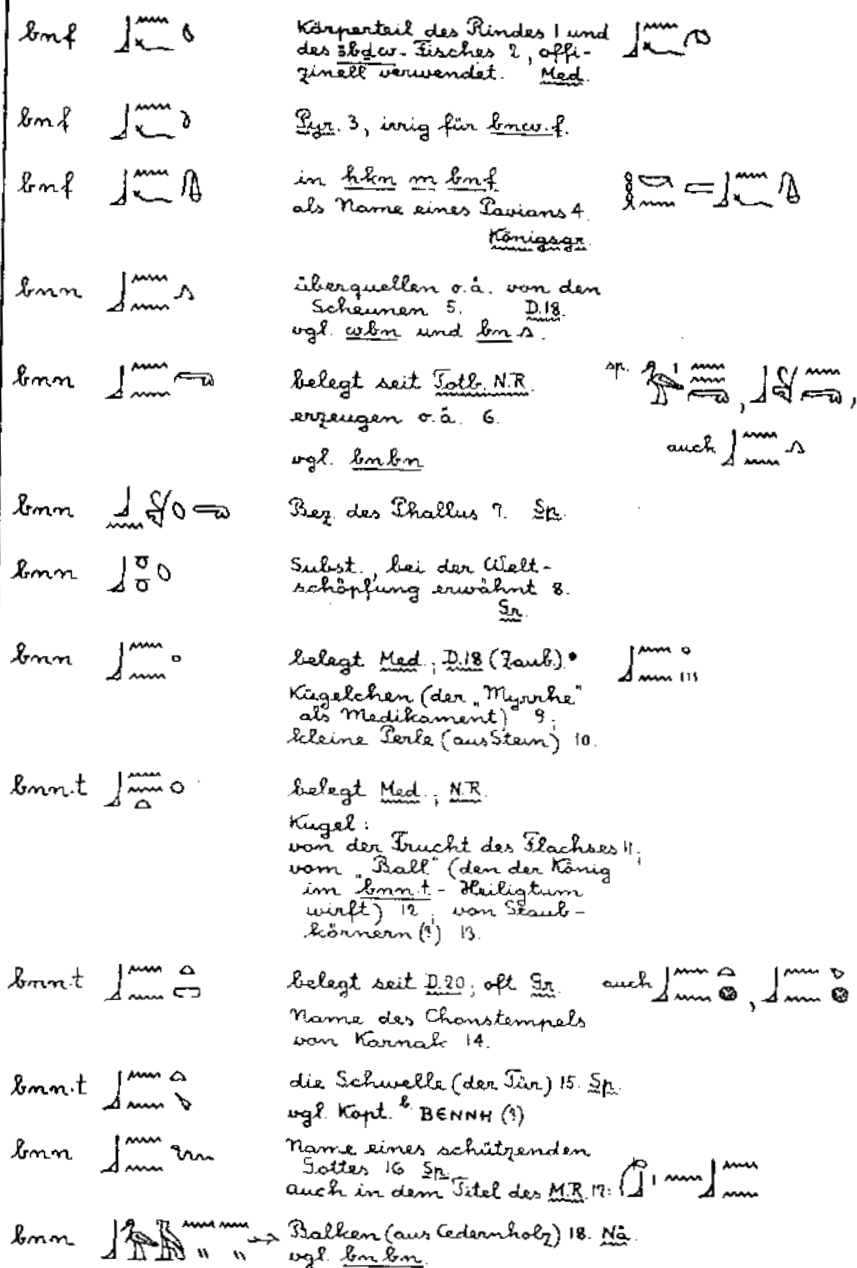 bnf Körperteil des Rindes 1 und
des ꜣbḏw-Fisches 2, offi-
zinell verwendet. Med.
bnf Pyr. 3, irrig für bnw.f.
bnf in ḥkn m bnf
als Name eines Pavians 4.
Königsgr.
bnn überquellen o.ä. von den
Scheunen 5. D.18.
vgl. wbn und bn
bnn belegt seit Totb. N.R. sp. , ,
erzeugen o.ä. 6.
vgl. bnbn auch
bnn Bez. des Phallus 7. Sp.
bnn Subst., bei der Welt-
schöpfung erwähnt 8.
Gr.
bnn belegt Med.; D.18 (Zaub).
Kügelchen (der „Myrrhe"
als Medikament) 9;
kleine Perle (aus Stein) 10.
bnn.t belegt Med.; N.R.
Kugel:
von der Frucht des Flachses 11;
vom „Ball" (den der König
im bnn.t-Heiligtum
wirft) 12; von Staub-
körnern (?) 13.
bnn.t belegt seit D.20; oft Gr. auch ,
Name des Chonstempels
von Karnak 14.
bnn.t die Schwelle (der Tür) 15. Sp.
vgl. Kopt. b. ⲂⲈⲚⲚⲎ (?)
bnn Name eines schützenden
Gottes 16 Sp.
auch in dem Titel des M.R. 17:
bnn Balken (aus Cedernholz) 18. Nä.
vgl. bnbn.